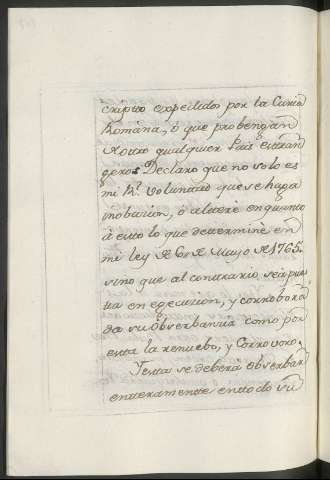 cripto expedidos por la Curia
Romana, ó que probengan
de otro qualquier Pais estran
geros Declaro que no solo es
mi Rl. voluntad que se haga
inobacion, ó altere en quanto
á esto lo que determiné en
mi ley de 6 de Mayo de 1765.
sino que al contrario sea pues
ta en egecucion, y corrobora
da su Obserbancia como por
esta la renuebo, y Corroboro.
Y esta se deberá obserbar
enteramente en todo su